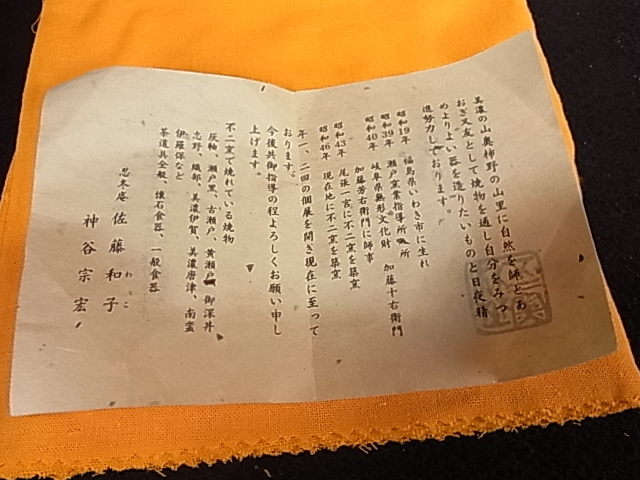 美濃の山奥柿野の山里に自然を師とあ
おぎ又友として焼物を通し自分をみつ
めよりよい器を造りたいものと日夜精
進努力しております。
昭和19年 福島県いわき市に生れ
昭和39年 瀬戸窯業指導所 所
昭和40年 岐阜県無形文化財 加藤十右衛門
加藤芳右衛門に師事
昭和43年 尾張一宮に不二窯を築窯
昭和46年 現在地に不二窯を築窯
年一、二回の個展を開き現在に至って
おります。
今後共御指導の程よろしくお願い申し
上げます。
不二窯で焼れている焼物
灰釉、瀬戸黒、古瀬戸、黄瀬戸、御深井
志野、織部、美濃伊賀、美濃唐津、南蛮
伊羅保など
茶道具全般、懐石食器、一般食器
忍冬庵 佐藤和子
わこ
神谷宗宏